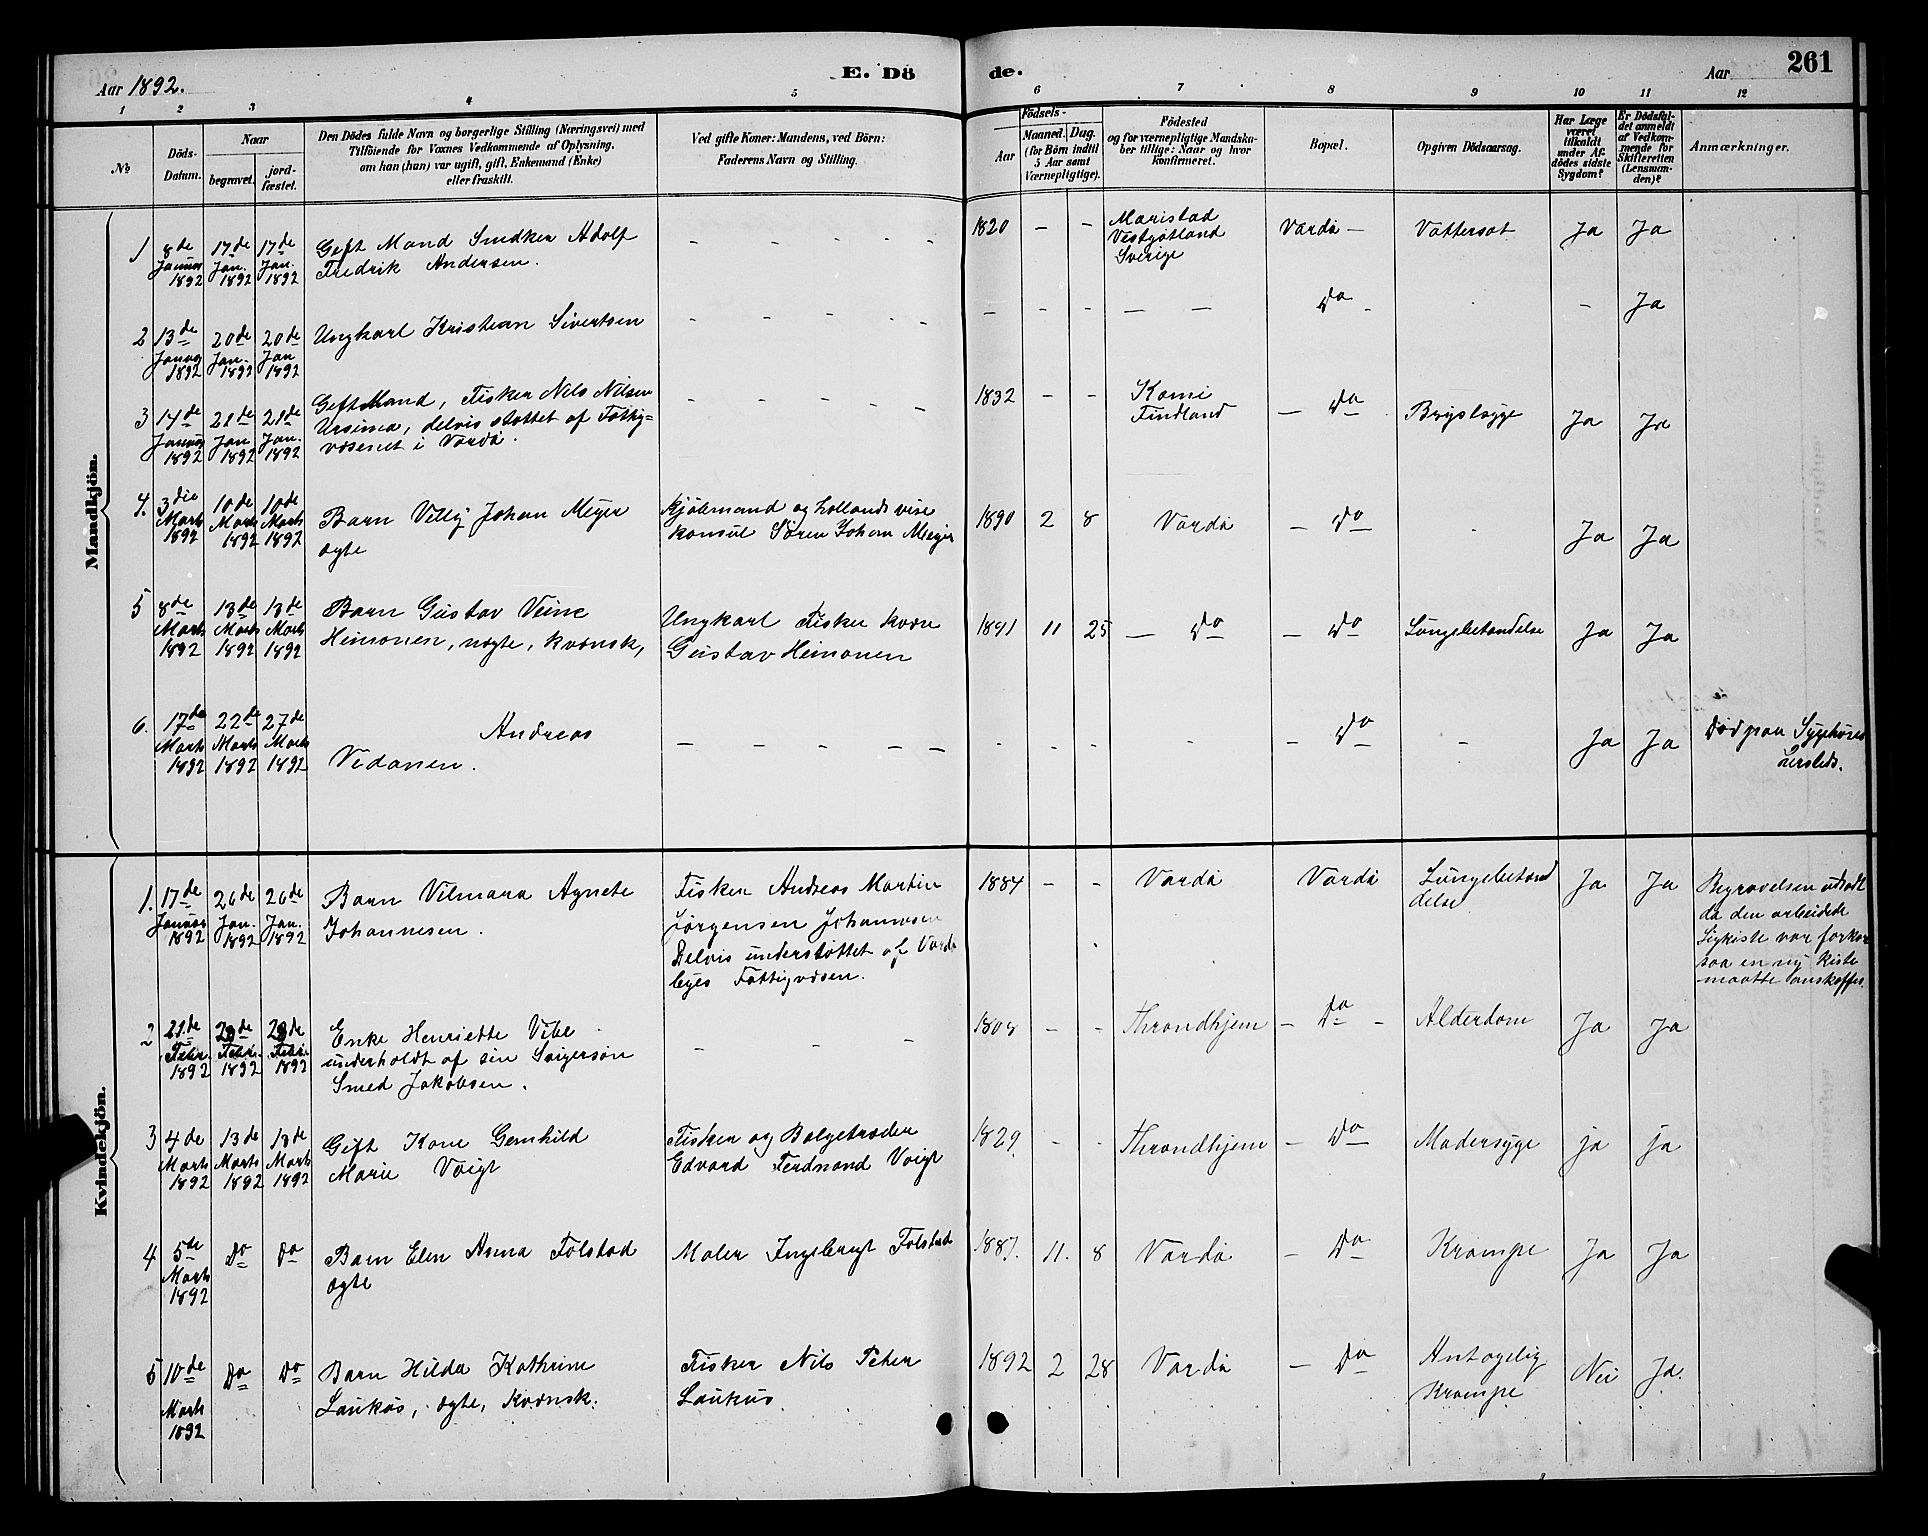 Aar 1892.
E. Dö
de.
Aar
261
1 2 3 4 5 6 7 8 9 10 11 12
No
Döds-
Datum.
Naar
begravet.
jord-
fæstet.
Den Dödes fulde Navn og borgerlige Stilling (Næringsvei) med
Tilföiende for Voxnes Vedkommende af Oplysning,
om han (hun) var ugift, gift, Enkemand (Enke)
eller fraskilt.
Ved gifte Koner: Mandens, ved Börn:
Faderens Navn og Stilling.
Födsels-
Aar
Maaned. Dag.
(for Börn indtil
5 Aar samt
Værnepligtige).
Födested
og for værnepligtige Mandska-
ber tillige: Naar og hvor
konfirmeret.
Bopæl.
Opgiven Dödsaarsag.
Har Læge
været
tilkaldt
under Af-
dödes sidste
Sygdom?
Er Dödsfal-
det anmeldt
af Vedkom-
mende for
Skifteretten
(Lensman-
den)?
Anmærkninger.
Mandkjön.
1 8de Januar 1892 17de Jan. 1892 17de Jan. 1892
Gift Mand Snedker Adolf
Fredrik Andersen.
- - - - -
1820 - -
Maristad
Vestgøtland
Sverige
Vardø - Vattersot Ja Ja
2 13de Januar 1892 20de Jan. 1892 20de Jan 1892
Ungkarl Kristian Sivertsen
- - - - -
- - - - - Do - - Ja
3 14de Januar 1892 21de Jan 1892 21de Jan. 1892
Gift Mand, Fisker Nils Nilsen
Ursima, delvis støttet af Fattig=
væsenet i Vardø.
- - - - -
1832 - -
Komi
Findland
- Do Brystsyge Ja Ja
4. 3die Marts 1892 10de Marts 1892 10de Marts 1892
Barn Villy Johan Meyer
ægte
Kjøbmand og Hollands vise
konsul Søren Johan Meyer
1890 2 8 Vardø - Do - Ja Ja
5 8de Marts 1892 13de Marts 1892 13de Marts 1892
Barn Gustav Veine
Heimonen, uægte, kvænsk,
Ungkarl Fisker kvæn
Gustav Heimonen
1891 11 25 - Do - Do Lungebetændelse Ja Ja
6. 17de Marts 1892 22de Marts 1892 27de Marts 1892
Andreas
Vidanen.
- - - - -
- - - - - Do - Ja Ja
Død paa Sygehuset
Kvindekjön.
1. 17de Januar 1892 26de Jan. 1892 26de Jan. 1892
Barn Vilmara Agnete
Johannesen.
Fisker Andreas Martin
Jørgensen Johannesen
Delvis understøttet af Vardø
byes Fattigvæsen.
1884 - - Vardø Vardø
Lungebetæn
delse
Ja Ja
Begravelsen udsadt
da den arbeidede
Ligkiste var forkor
saa en ny kiste
maatte anskaffes.
2 21de Febr. 1892 28de Febr. 1892 28de Febr. 1892
Enke Henriette Vibe
underholdt af sin Svigersøn
Smed Jakobsen.
- - -
1808 - - Throndhjem - Do - Alderdom Ja Ja
3 4de Marts 1892 13de Marts 1892 13de Marts 1892
Gift Kone Gernhild
Marie Voigt
Fisker og Bølgetræder
Edvard Ferdnand Voigt
1829 - - Throndhjem - Do Modersyge ja ja
4 5de Marts 1892 Do Do
Barn Elen Anna Folstad
ægte
Maler Ingebrigt Folstad
1887. 11. 8 Vardø - Do Krampe Ja Ja
5 10de Marts 1892 Do Do
Barn Hilda Kathrine
Laukas, ægte, kvænsk.
Fisker Nils Peter
Laukus
1892 2 28 Vardø - Do
Antagelig
Krampe
Nei Ja.